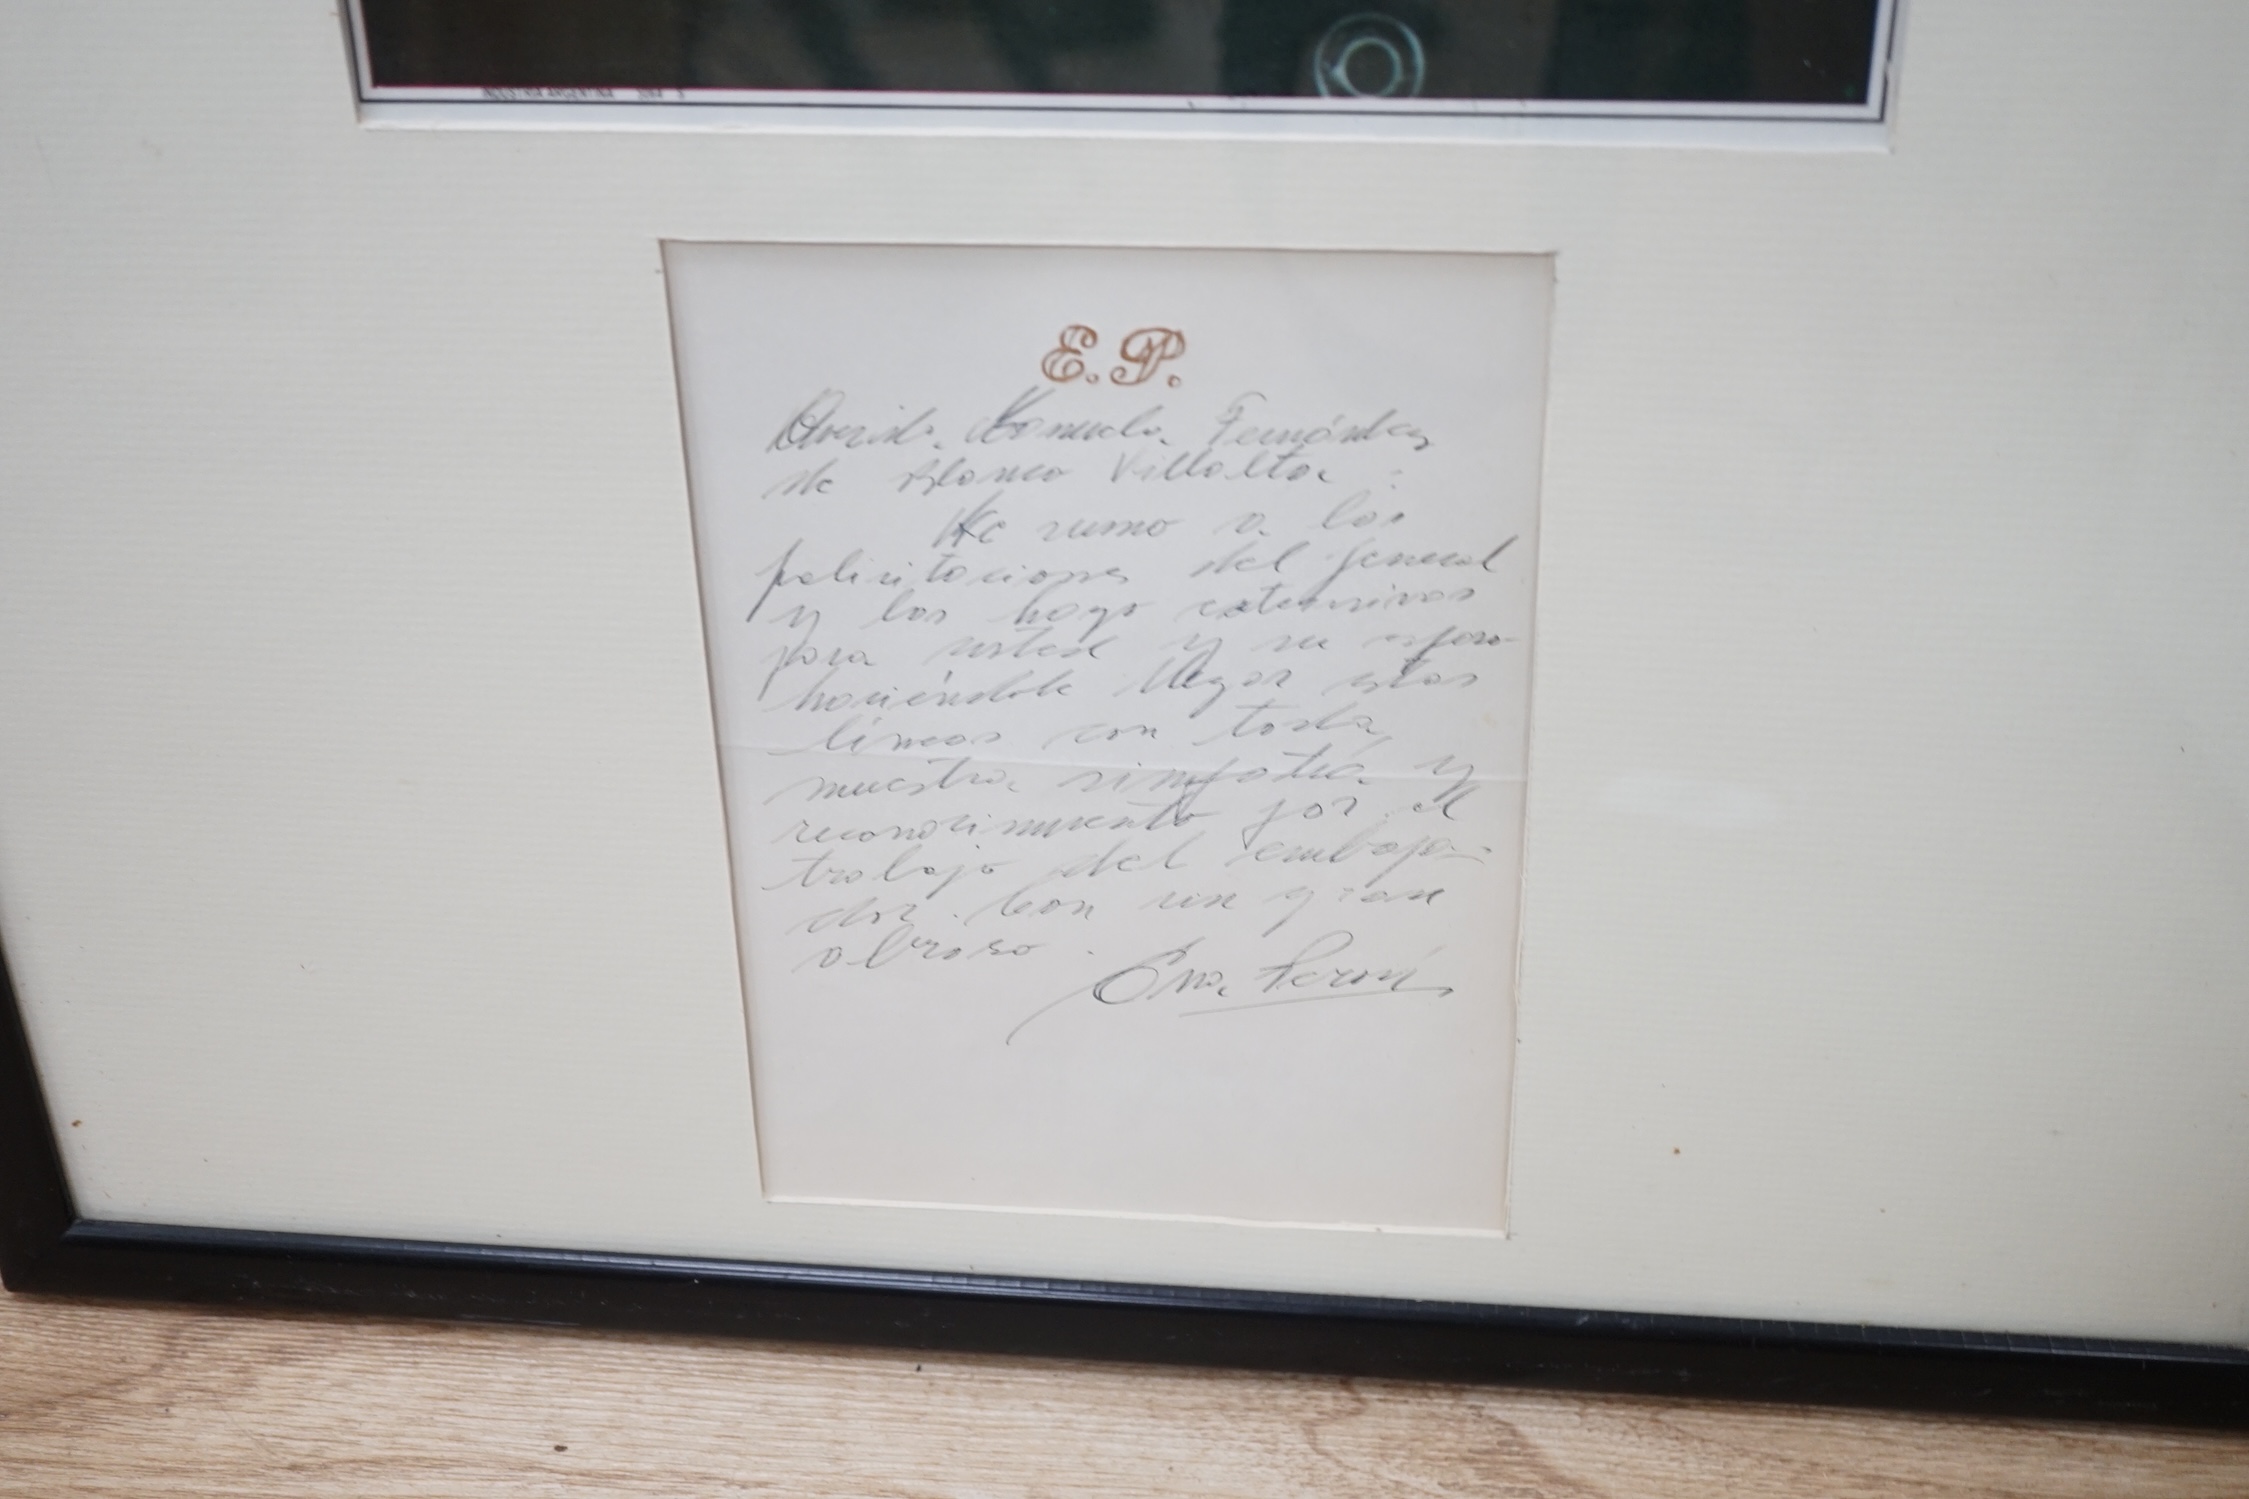 INDUSTRIA ARGENTINA
E.P.
Querida Fernández
de Blanco Villalta:
Me sumo a las
felicitaciones del general
y las hago extensivas
para usted y su esposo
haciéndole llegar estas
líneas con toda
nuestra simpatía y
reconocimiento por el
trabajo del embaja-
dor. Con un gran
abraso.
Eva Perón